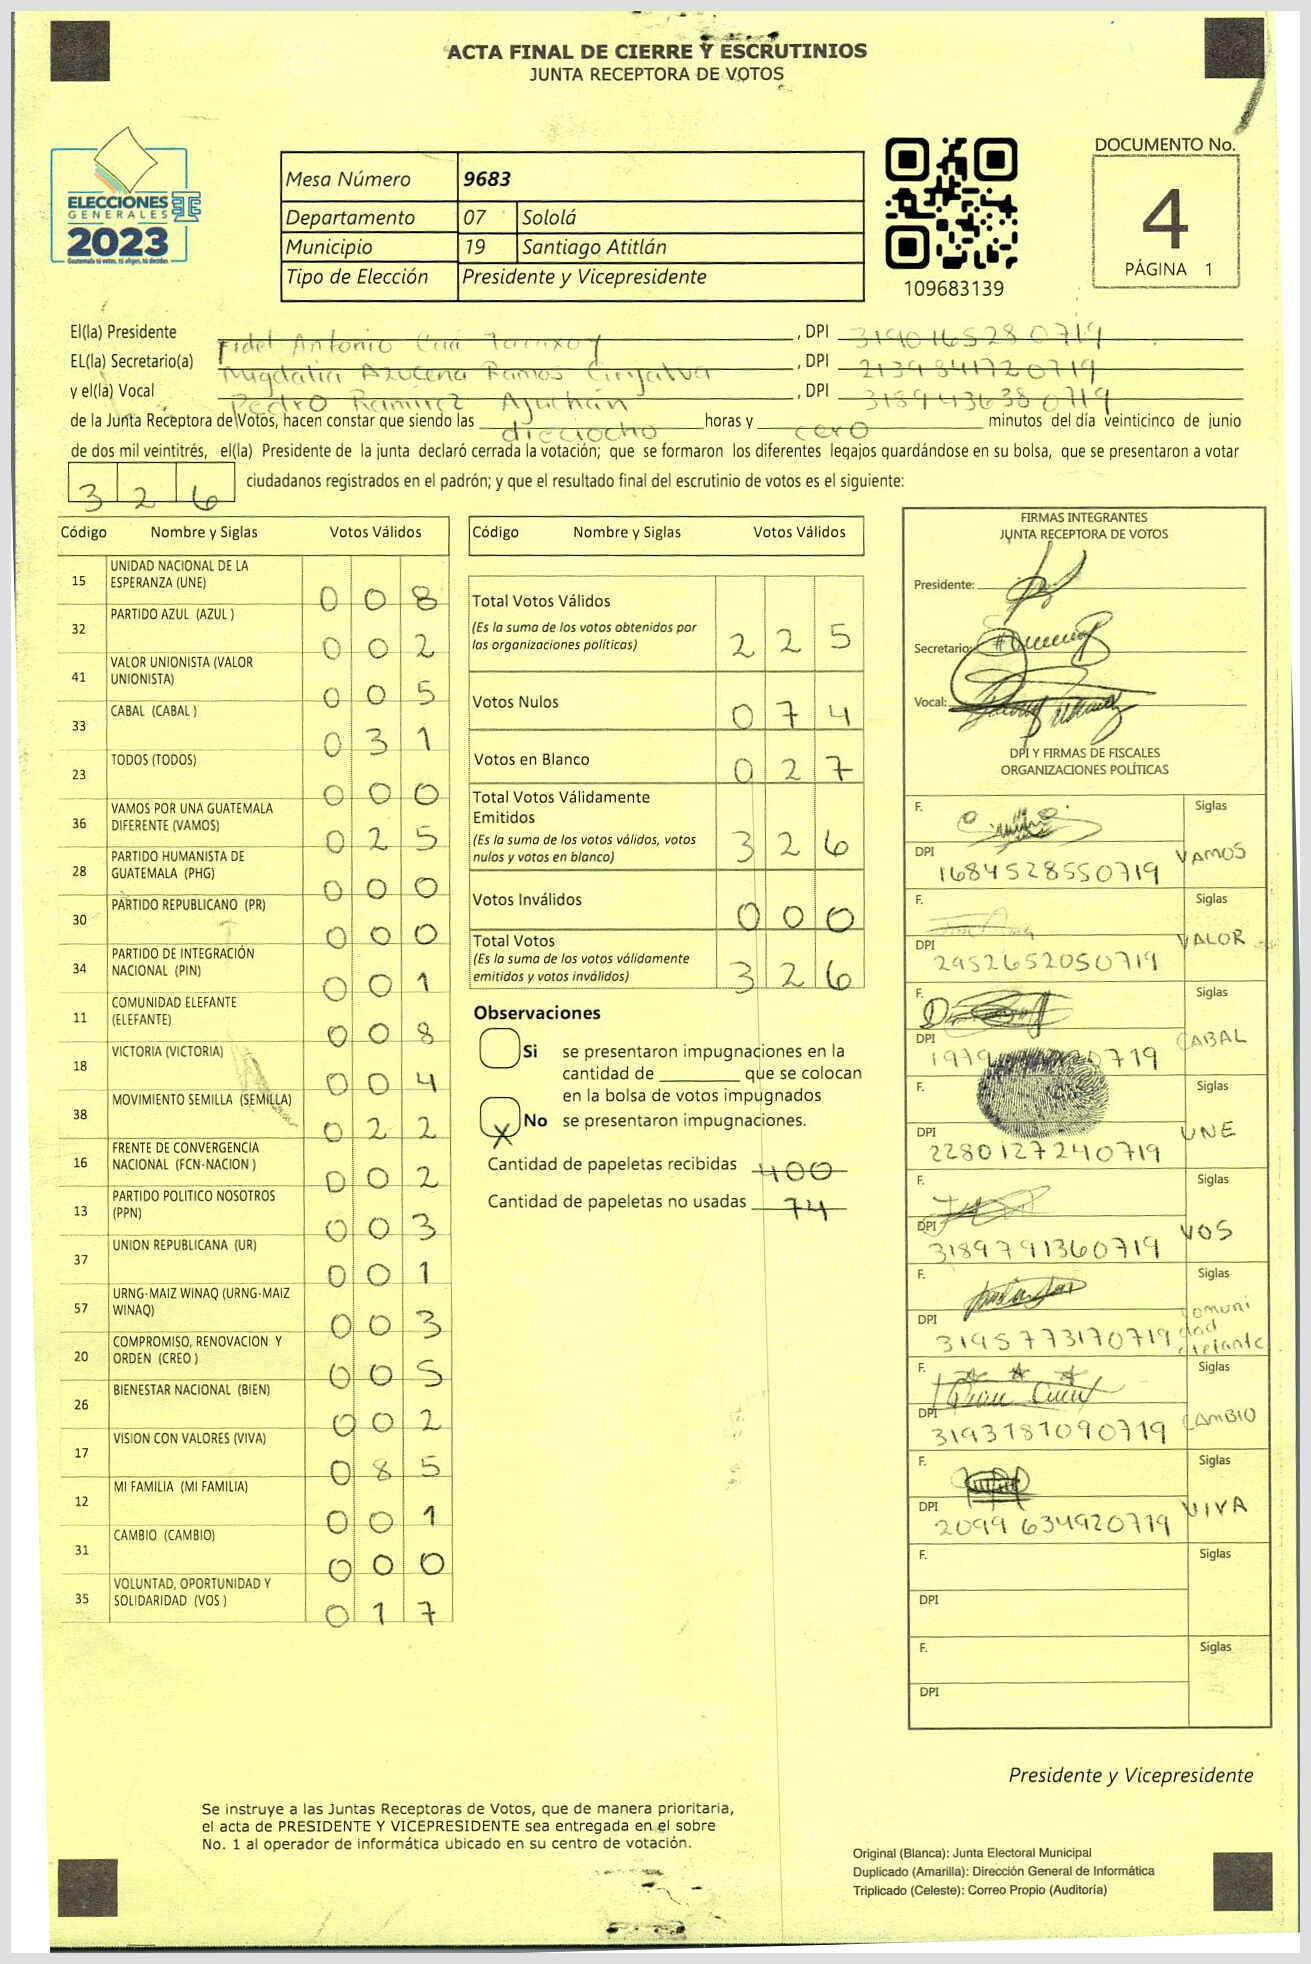 ACTA FINAL DE CIERRE Y ESCRUTINIOS
JUNTA RECEPTORA DE VOTOS
ELECCIONES
GENERALES
2023
Guatemala tú votas, tú eliges, tú decides
Mesa Número 9683
Departamento 07 Sololá
Municipio 19 Santiago Atitlán
Tipo de Elección Presidente y Vicepresidente
109683139
DOCUMENTO No.
4
PÁGINA 1
El(la) Presidente Fidel Antonio , DPI 3190165280719
EL(la) Secretario(a) Migdalia Azucena Ramos , DPI 2139841720719
y el(la) Vocal Pedro Ramirez , DPI 3189436380719
de la Junta Receptora de Votos, hacen constar que siendo las dieciocho horas y cero minutos del día veinticinco de junio
de dos mil veintitrés, el(la) Presidente de la junta declaró cerrada la votación; que se formaron los diferentes legajos guardándose en su bolsa, que se presentaron a votar
326 ciudadanos registrados en el padrón; y que el resultado final del escrutinio de votos es el siguiente:
Código Nombre y Siglas Votos Válidos
15 UNIDAD NACIONAL DE LA ESPERANZA (UNE) 008
32 PARTIDO AZUL (AZUL ) 002
41 VALOR UNIONISTA (VALOR UNIONISTA) 005
33 CABAL (CABAL ) 031
23 TODOS (TODOS) 000
36 VAMOS POR UNA GUATEMALA DIFERENTE (VAMOS) 025
28 PARTIDO HUMANISTA DE GUATEMALA (PHG) 000
30 PARTIDO REPUBLICANO (PR) 000
34 PARTIDO DE INTEGRACIÓN NACIONAL (PIN) 001
11 COMUNIDAD ELEFANTE (ELEFANTE) 008
18 VICTORIA (VICTORIA) 004
38 MOVIMIENTO SEMILLA (SEMILLA) 022
16 FRENTE DE CONVERGENCIA NACIONAL (FCN-NACION ) 002
13 PARTIDO POLITICO NOSOTROS (PPN) 003
37 UNION REPUBLICANA (UR) 001
57 URNG-MAIZ WINAQ (URNG-MAIZ WINAQ) 003
20 COMPROMISO, RENOVACION Y ORDEN (CREO ) 005
26 BIENESTAR NACIONAL (BIEN) 002
17 VISION CON VALORES (VIVA) 085
12 MI FAMILIA (MI FAMILIA) 001
31 CAMBIO (CAMBIO) 000
35 VOLUNTAD, OPORTUNIDAD Y SOLIDARIDAD (VOS ) 017
Código Nombre y Siglas Votos Válidos
Total Votos Válidos 225
(Es la suma de los votos obtenidos por
las organizaciones políticas)
Votos Nulos 074
Votos en Blanco 027
Total Votos Válidamente
Emitidos 326
(Es la suma de los votos válidos, votos
nulos y votos en blanco)
Votos Inválidos 000
Total Votos 326
(Es la suma de los votos válidamente
emitidos y votos inválidos)
Observaciones
Si se presentaron impugnaciones en la
cantidad de ________ que se colocan
en la bolsa de votos impugnados
X No se presentaron impugnaciones.
Cantidad de papeletas recibidas 400
Cantidad de papeletas no usadas 74
FIRMAS INTEGRANTES
JUNTA RECEPTORA DE VOTOS
Presidente:
Secretario:
Vocal:
DPI Y FIRMAS DE FISCALES
ORGANIZACIONES POLÍTICAS
F. Siglas
DPI 1684528550719 VAMOS
F. Siglas
DPI 2952652050719 VALOR
F. Siglas
DPI CABAL
F. Siglas
DPI 2280127240719 UNE
F. Siglas
DPI 3189791360719 VOS
F. Siglas
DPI 3195773170719 Comunidad elefante
F. Siglas
DPI 3193787090719 CAMBIO
F. Siglas
DPI 2099634920719 VIVA
F. Siglas
DPI
F. Siglas
DPI
Presidente y Vicepresidente
Se instruye a las Juntas Receptoras de Votos, que de manera prioritaria,
el acta de PRESIDENTE Y VICEPRESIDENTE sea entregada en el sobre
No. 1 al operador de informática ubicado en su centro de votación.
Original (Blanca): Junta Electoral Municipal
Duplicado (Amarilla): Dirección General de Informática
Triplicado (Celeste): Correo Propio (Auditoría)